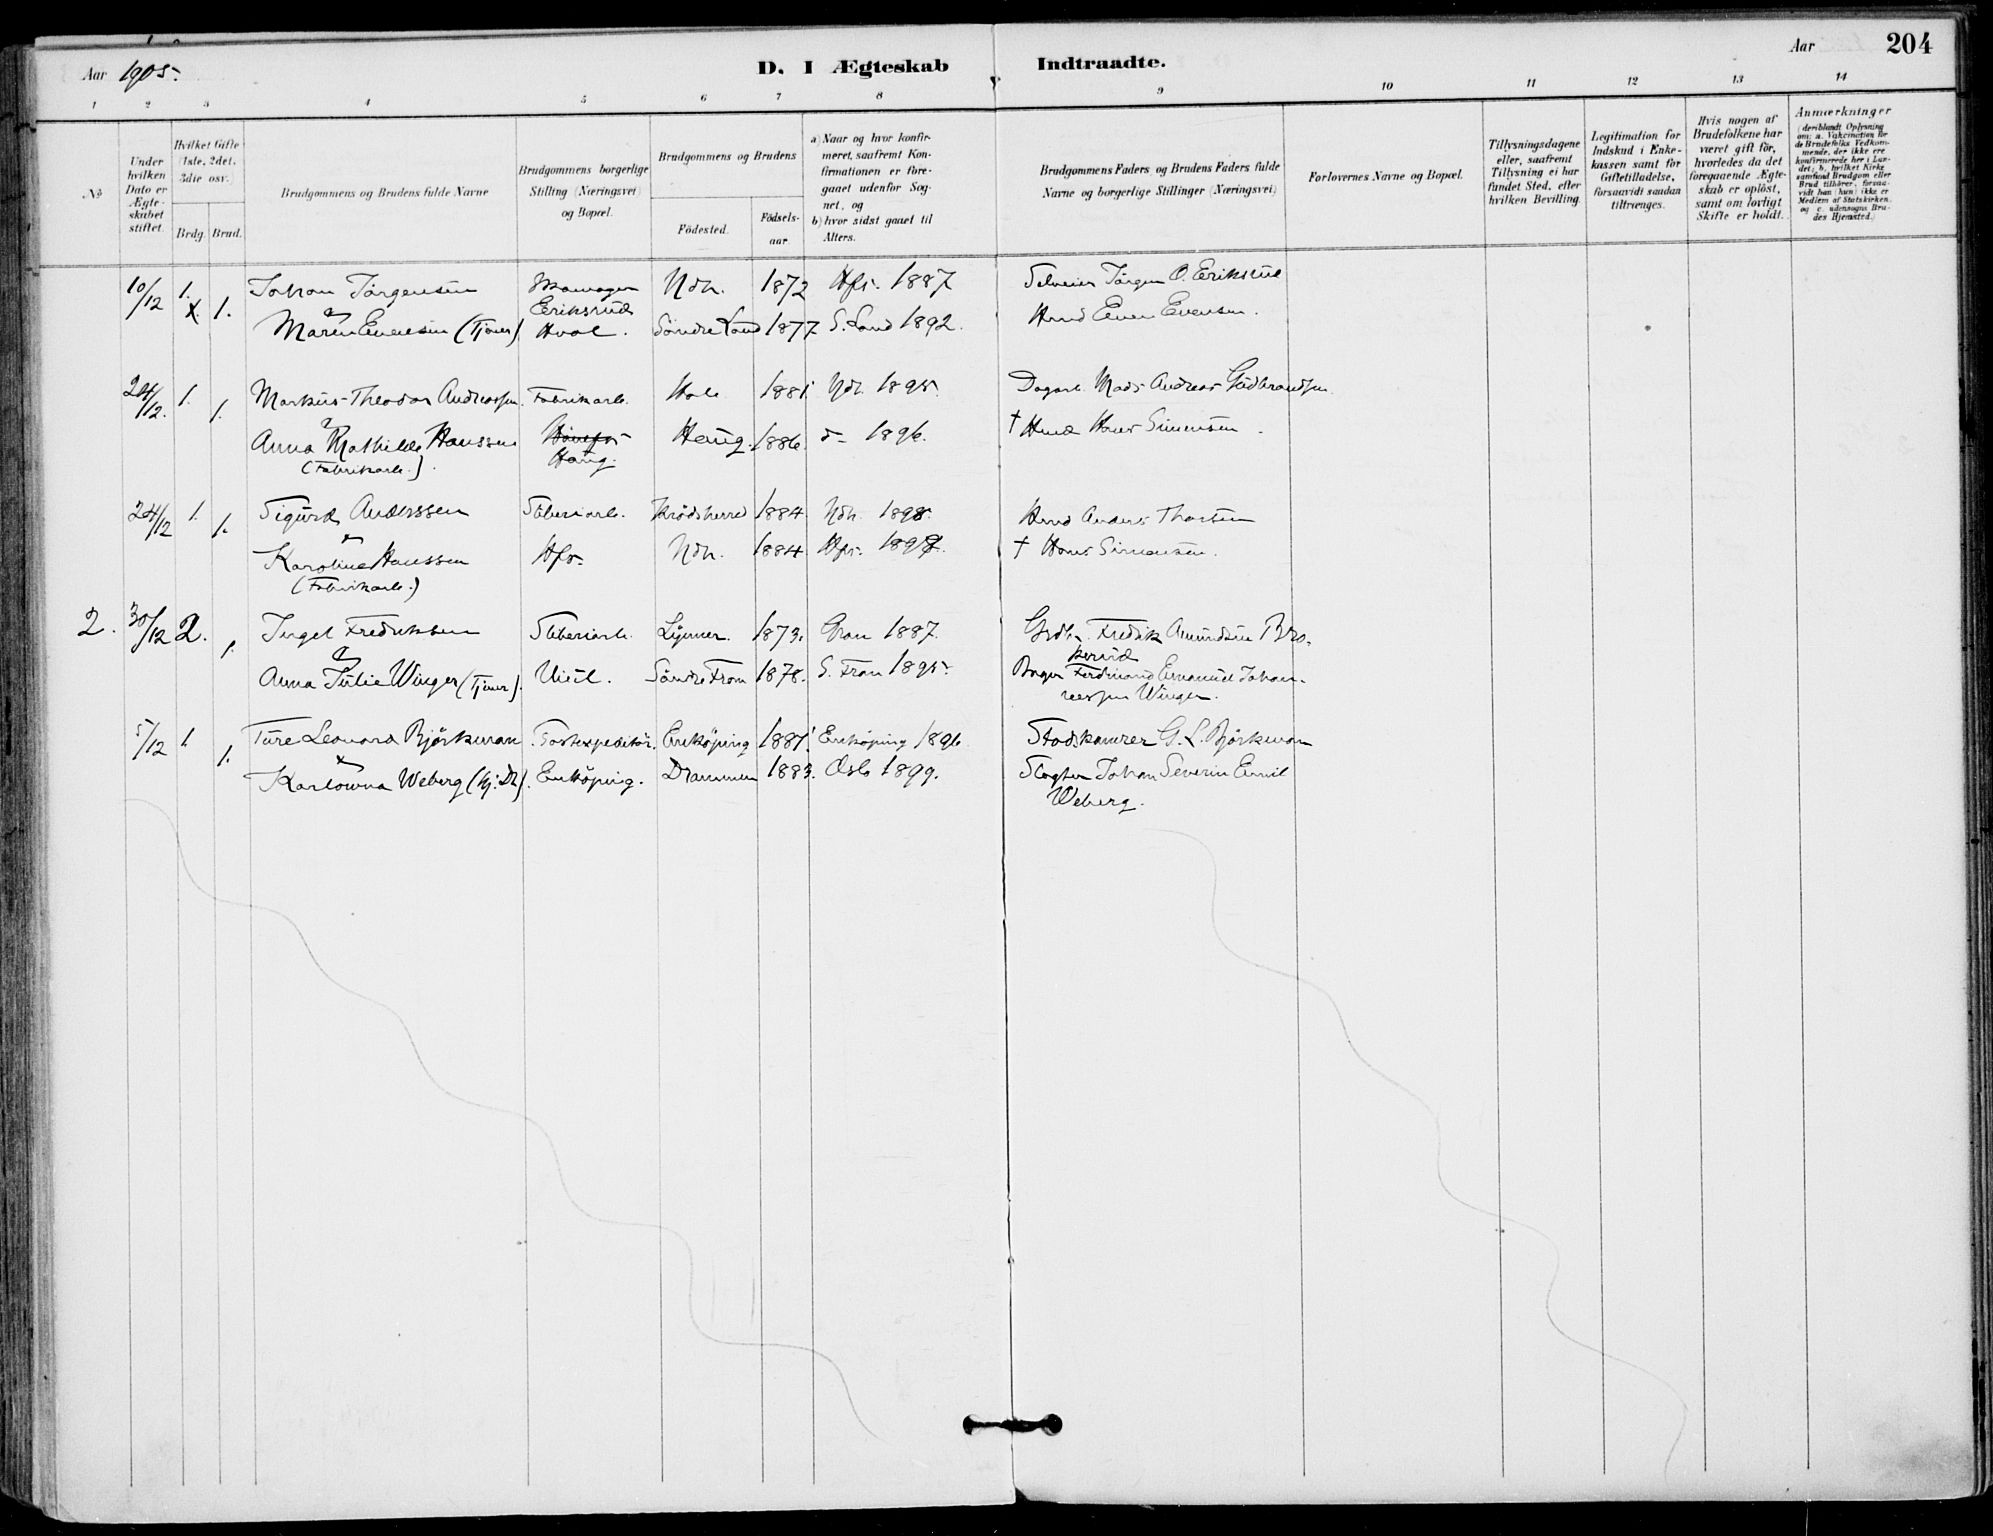 Aar 1905.
D. I Ægteskab Indtraadte.
Aar 204
1 2 3 4 5 6 7 8 9 10 11 12 13 14
№
Under hvilken Dato er Ægteskabet stiftet.
Hvilket Gifte (1ste, 2det, 3die osv.)
Brdg. Brud.
Brudgommens og Brudens fulde Navne
Brudgommens borgerlige Stilling (Næringsvei) og Bopæl.
Brudgommens og Brudens
Födested. Födselsaar
a) Naar og hvor konfirmeret, saafremt Konfirmationen er foregaaet udenfor Sognet, og
b) hvor sidst gaaet til Alters.
Brudgommens Faders og Brudens Faders fulde Navne og borgerlige Stillinger (Næringsvei)
Forlovernes Navne og Bopæl.
Tillysningsdagene eller, saafremt Tillysning ei har fundet Sted, efter hvilken Bevilling.
Legitimation for Indskud i Enkekassen samt for Giftetilladelse, forsaavidt saadan tiltrænges.
Hvis nogen af Brudefolkene har været gift för, hvorledes da det foregaaende Ægteskab er oplöst, samt om lovligt Skifte er holdt.
Anmærkninger (deriblandt Oplysning om: a. Vakcination for de Brudefolks Vedkommende, der ikke ere konfirmerede her i Landet; b. hvilket Kirkesamfund Brudgom eller Brud tilhörer, forsaavidt han (hun) ikke er Medlem af Statskirken, og c. udensogns Brudes Hjemsted.)
10/12 1. Johan Jörgensen Skomager Ndh. 1872 Hfs. 1887 Selveier Jörgen O. Eriksrud
x 1. Eriksrud
& Maren Evensen (Tjener) Hval. Söndre Land 1877 S. Land 1892. Hmd Even Evensen.
24/12. 1. Markus Theodor Andreassen. Fabrikarb. Hole 1881. Ndh. 1895. Dagarb. Mads Andreas Gudbrandsen
1. & Anna Mathilde Hanssen Hönefos Haug. 1886. d- 1896. † Hmd Hans Simensen.
(Fabrikarb.). Haug.
24/12 1. Sigurd Anderssen Sliberiarb. Krödsherred 1884. Ndh. 1898. Hmd Anders Thorsen
1. & Karoline Hanssen Hfs. Ndh. 1884. Hfs. 1897. † Hans Simensen.
(Fabrikarb.)
2. 30/12 2. Ingel Fredriksen Sliberiarb. Lunner. 1873. Gran 1887. Grdb. Fredrik Amundsen Bro-
1. kerud
& Anna Julie Winger (Tjener). Viul. Söndre Fron 1878. S. Fron 1895. Bager Ferdinand Emanuel Johan-
nessen Winger.
5/12 1 Ture Leonard Björkman Postexpeditör. Enköping 1881. Enköping 1896. Stadskamrer G. L. Björkman
1. & Karlowna Weberg (Hj: Dr). Enköping. Drammen 1883. Oslo 1899. Slagter Johan Severin Emil
Weberg.